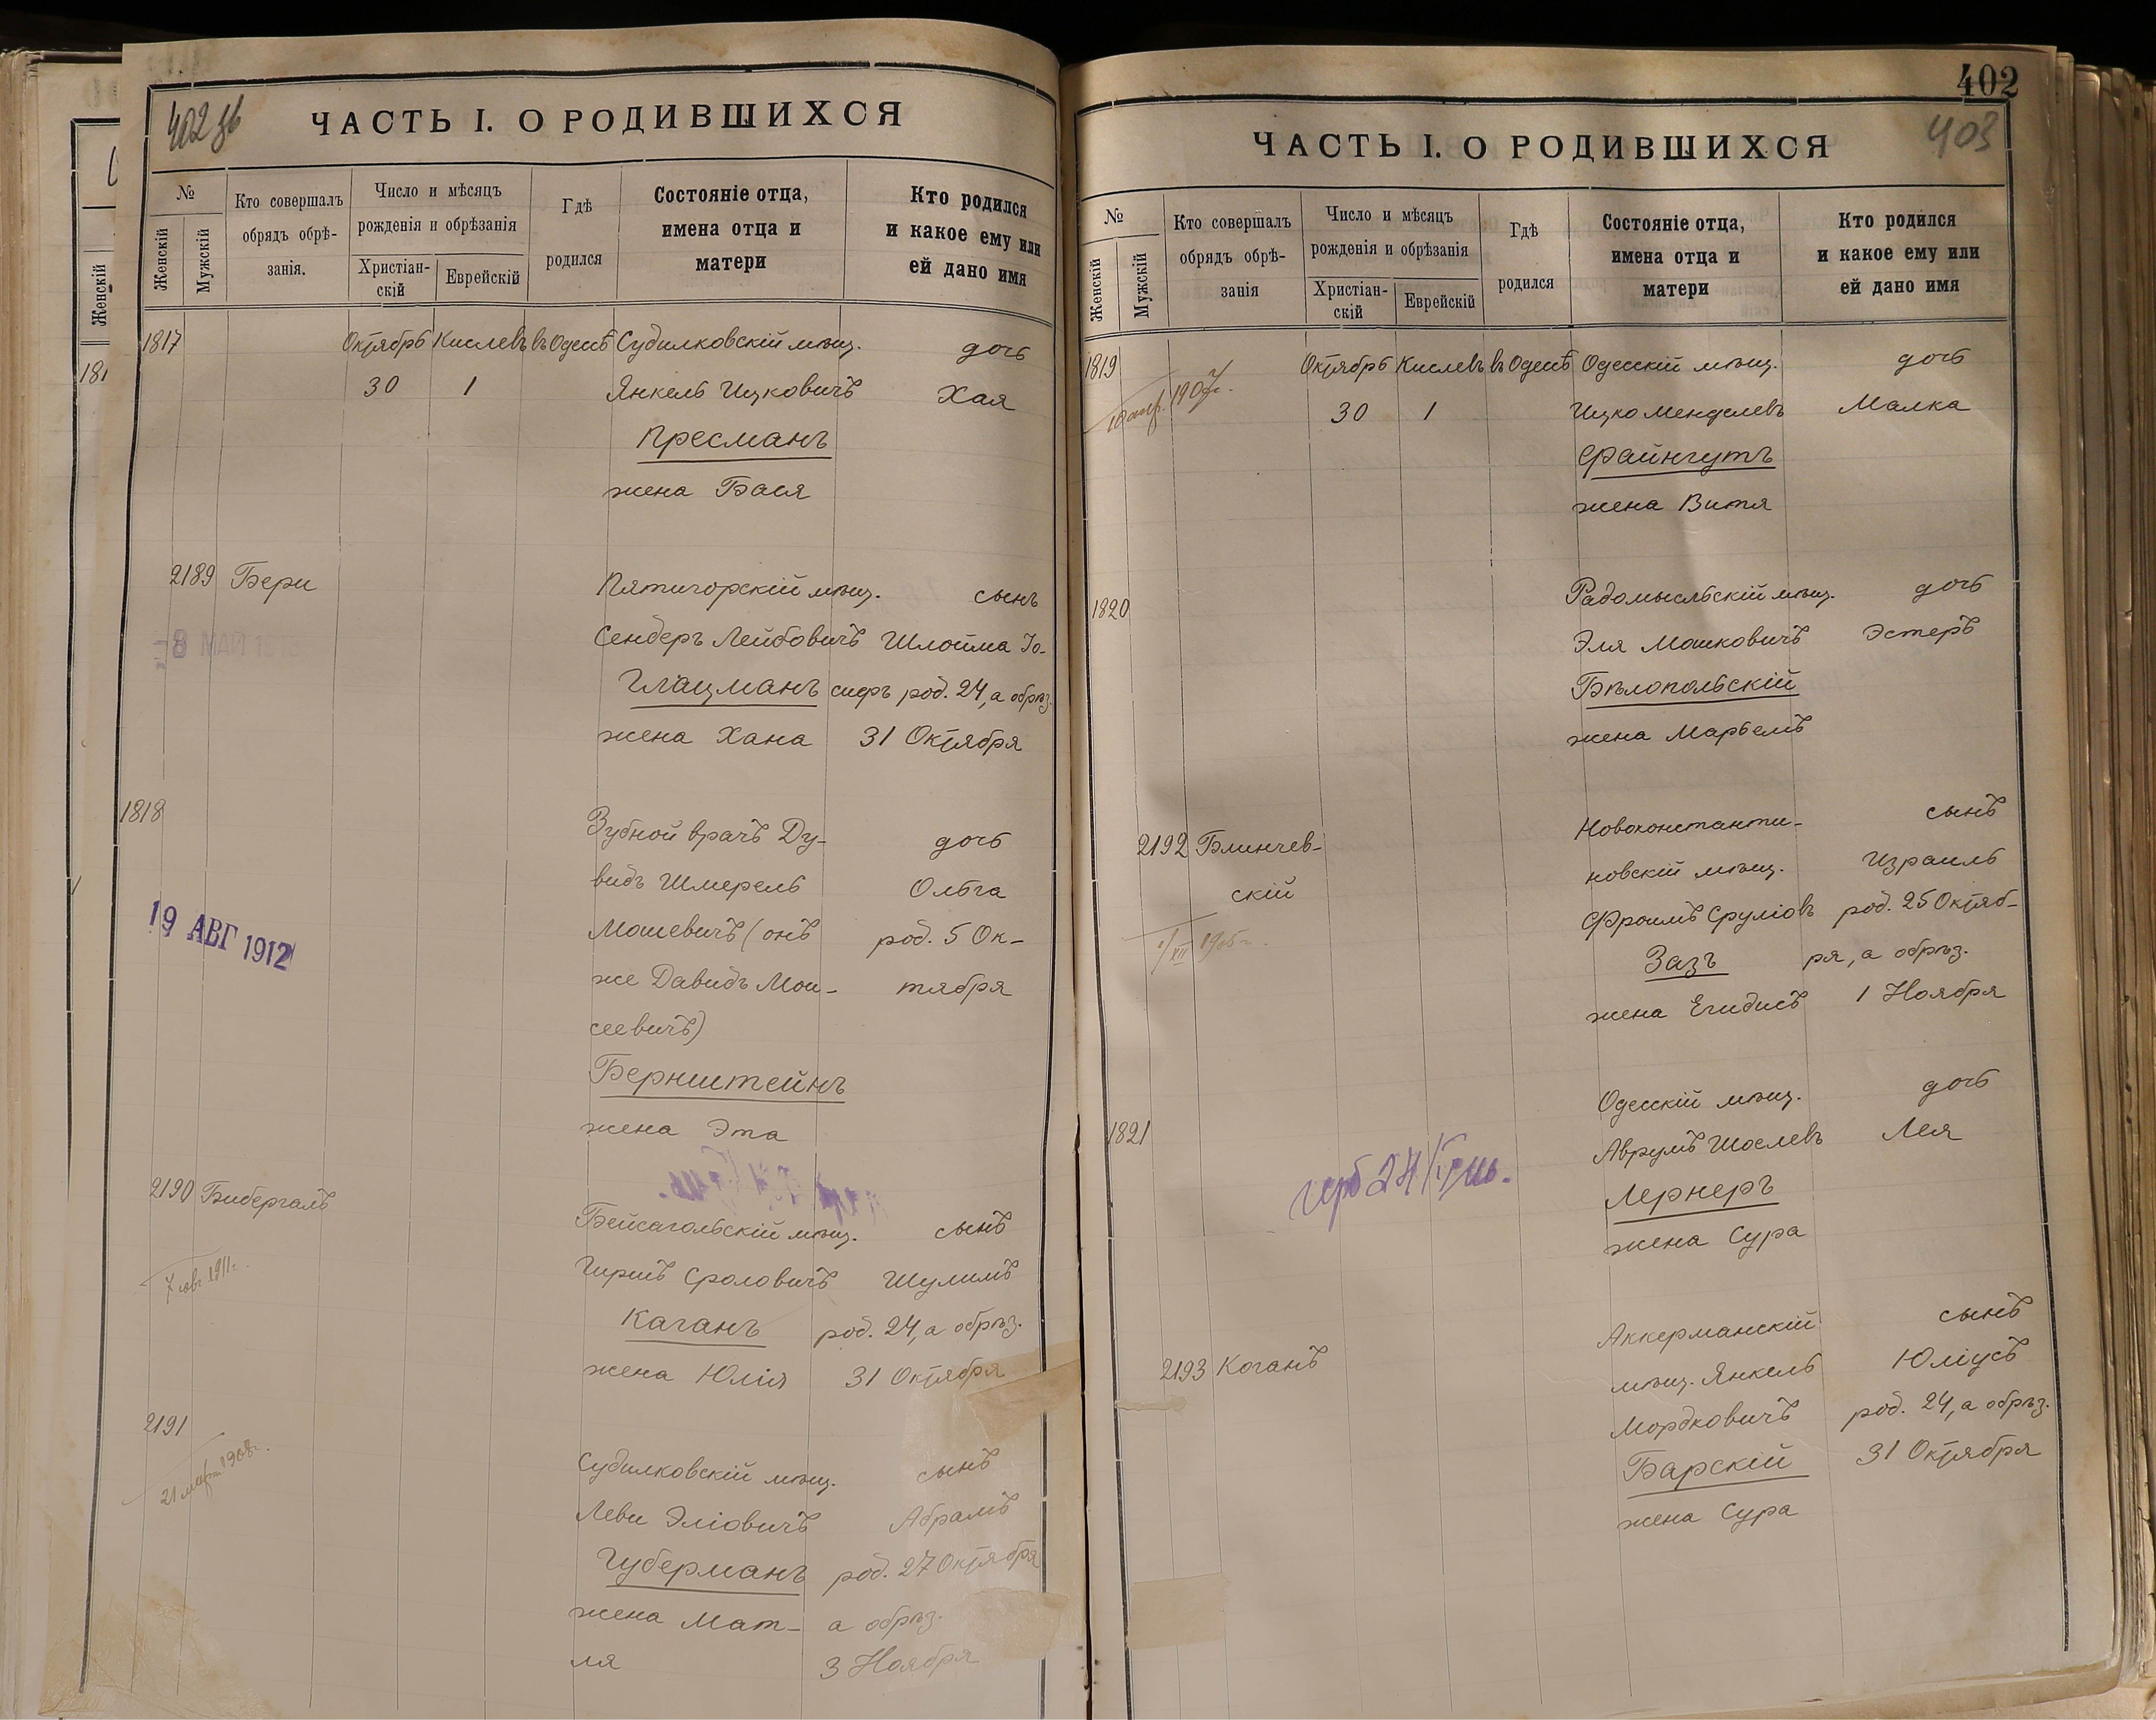 402 зв
ЧАСТЬ I. О РОДИВШИХСЯ
№
Женскій
Мужскій
Кто совершалъ
обрядъ обрѣ-
занія.
Число и мѣсяцъ
рожденія и обрѣзанія
Христіан-
скій
Еврейскій
Гдѣ
родился
Состояніе отца,
имена отца и
матери
Кто родился
и какое ему или
ей дано имя
Женскій
181
1817 Октябрь Кислевъ въ Одессѣ Судилковскій мѣщ. дочь
30 1 Янкель Ицковичъ Хая
Пресманъ
жена Бася
2189 Бери Пятигорскій мѣщ. сынъ
Сендеръ Лейбовичъ Шлойма Іо-
8 МАЙ
Глацманъ сифъ род. 24, а обрѣз.
жена Хана 31 Октября
1818 Зубной врачъ Ду- дочь
видъ Шмерель Ольга
19 АВГ 1912
Мошевичъ (онъ род. 5 Ок-
же Давидъ Мои- тября
сеевичъ)
Бернштейнъ
жена Эта
2190 Бибергалъ Бейсагольскій мѣщ. сынъ
7 1911г. Гиршъ Сроловичъ Шулимъ
Каганъ род. 24, а обрѣз.
жена Юлія 31 Октября
2191 Судилковскій мѣщ. сынъ
21 март 1908г. Леви Эліовичъ Абрамъ
Губерманъ род. 27 Октября
жена Мат- а обрѣз.
ля 3 Ноября
402
403
ЧАСТЬ I. О РОДИВШИХСЯ
№
Женскій
Мужскій
Кто совершалъ
обрядъ обрѣ-
занія
Число и мѣсяцъ
рожденія и обрѣзанія
Христіан-
скій
Еврейскій
Гдѣ
родился
Состояніе отца,
имена отца и
матери
Кто родился
и какое ему или
ей дано имя
1819 Октябрь Кислевъ въ Одессѣ Одесскій мѣщ. дочь
1907г. 30 1 Ицко Менделевъ Малка
Файнгутъ
жена Витя
1820 Радомысльскій мѣщ. дочь
Эля Мошковичъ Эстеръ
Бѣлопольскій
жена Марьемъ
2192 Блинчев- Новоконстанти- сынъ
скій новскій мѣщ. Израиль
1/XII 1905г. Фроимъ Сруліовъ род. 25 Октяб-
Зазъ ря, а обрѣз.
жена Егидисъ 1 Ноября
1821 Одесскій мѣщ. дочь
Аврумъ Шоелевъ Лея
Лернеръ
жена Сура
2193 Коганъ Аккерманскій сынъ
мѣщ. Янкель Юліусъ
Мордковичъ род. 24, а обрѣз.
Барскій 31 Октября
жена Сура